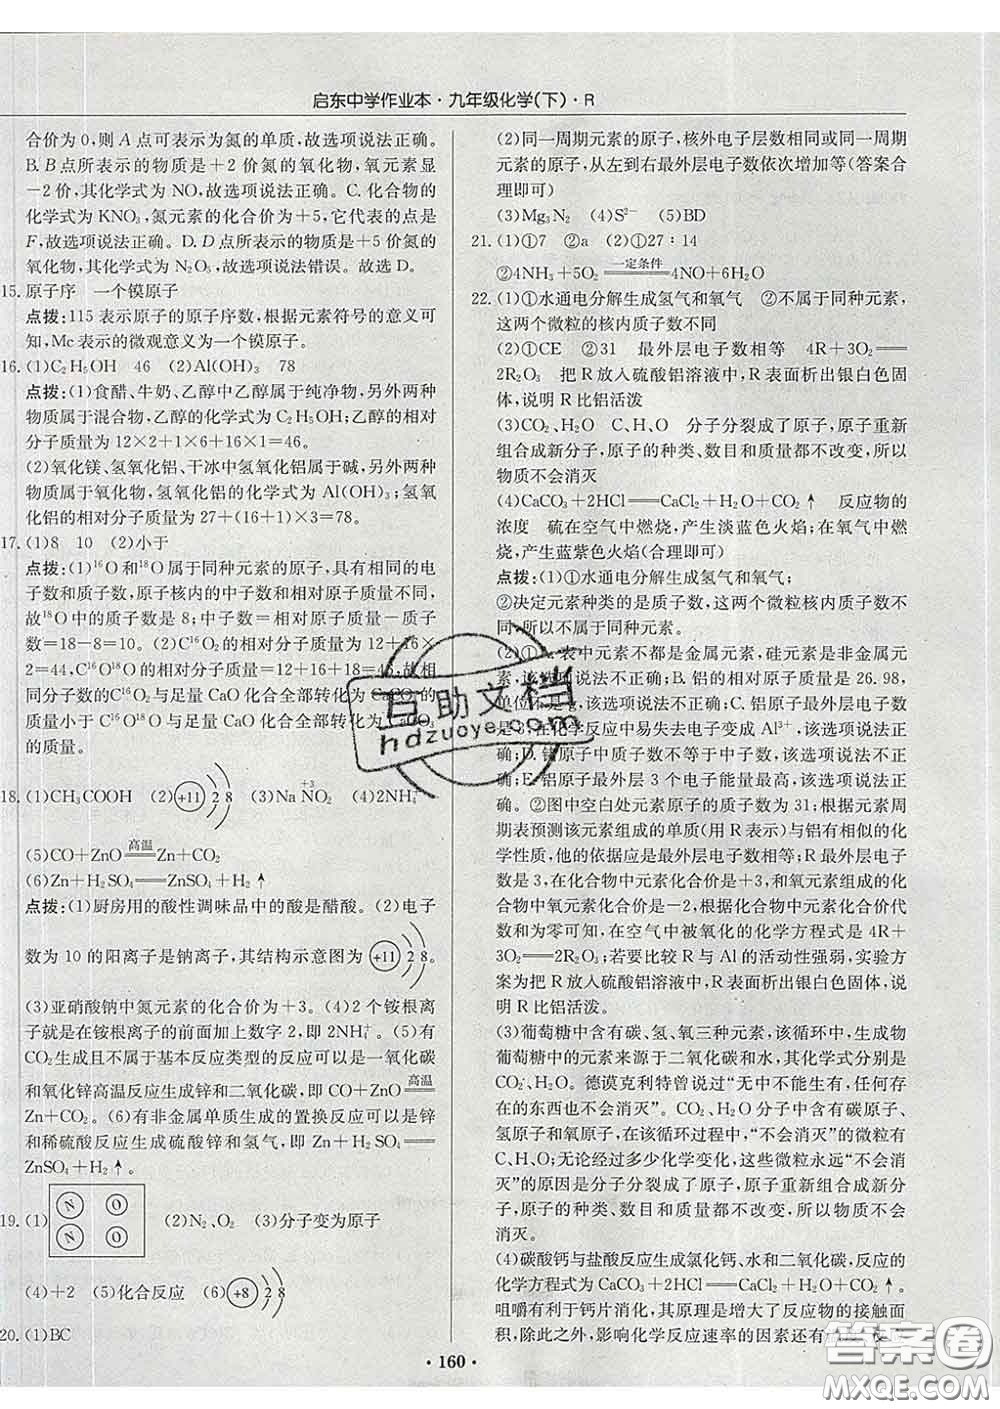 启东中学作业本·九年级化学(下)·R
合价为0,则A点可表示为氮的单质,故选项说法正确。
B. B点所表示的物质是+2价氮的氧化物,氧元素显
-2价,其化学式为NO,故选项说法正确。C. 化合物的
化学式为KNO₃,氮元素的化合价为+5,它代表的点是
F,故选项说法正确。D. D点所表示的物质是+5价氮的
氧化物,其化学式为N₂O₅,故选项说法错误。故选D。
15. 原子序 一个镆原子
点拨:115表示原子的原子序数,根据元素符号的意义可
知,Mc表示的微观意义为一个镆原子。
16. (1)C₂H₅OH 46 (2)Al(OH)₃ 78
点拨:(1)食醋、牛奶、乙醇中乙醇属于纯净物,另外两种
物质属于混合物,乙醇的化学式为C₂H₅OH;乙醇的相对
分子质量为12×2+1×6+16×1=46。
(2)氧化镁、氢氧化铝、干冰中氢氧化铝属于碱,另外两种
物质属于氧化物,氢氧化铝的化学式为Al(OH)₃;氢氧
化铝的相对分子质量为27+(16+1)×3=78。
17. (1)8 10 (2)小于
点拨:(1)¹⁶O和¹⁸O属于同种元素的原子,具有相同的电
子数和质子数,原子核内的中子数和相对原子质量不同,
故¹⁸O中的质子数是8;中子数=相对原子质量-质子
数=18-8=10。(2)C¹⁶O₂的相对分子质量=12+16×
2=44,C¹⁶O¹⁸O的相对分子质量=12+16+18=46,故相
同分子数的C¹⁶O₂与足量CaO化合全部转化为CaCO₃的
质量小于C¹⁶O¹⁸O与足量CaO化合全部转化为CaCO₃
的质量。
18. (1)CH₃COOH (2) +11 2 8 (3)Na +3 NO₂ (4)2NH₄⁺
(5)CO+ZnO 高温 Zn+CO₂
(6)Zn+H₂SO₄══ZnSO₄+H₂↑
点拨:(1)厨房用的酸性调味品中的酸是醋酸。(2)电子
数为10的阳离子是钠离子,其结构示意图为 +11 2 8 。
(3)亚硝酸钠中氮元素的化合价为+3。(4)2个铵根离
子就是在铵根离子的前面加上数字2,即2NH₄⁺。(5)有
CO₂生成且不属于基本反应类型的反应可以是一氧化碳
和氧化锌高温反应生成锌和二氧化碳,即CO+ZnO 高温
Zn+CO₂。(6)有非金属单质生成的置换反应可以是锌
和稀硫酸反应生成硫酸锌和氢气,即Zn+H₂SO₄══
ZnSO₄+H₂↑。
19. (1) N O N O (2)N₂、O₂ (3)分子变为原子
(4)+2 (5)化合反应 (6) +8 2 8
20. (1)BC
(2)同一周期元素的原子,核外电子层数相同或同一周期
元素的原子,从左到右最外层电子数依次增加等(答案合
理即可)
(3)Mg₃N₂ (4)S²⁻ (5)BD
21. (1)①7 ②a (2)①27∶14
②4NH₃+5O₂ 一定条件 4NO+6H₂O
22. (1)①水通电分解生成氢气和氧气 ②不属于同种元素,
这两个微粒的核内质子数不同
(2)①CE ②31 最外层电子数相等 4R+3O₂══
2R₂O₃ 把R放入硫酸铝溶液中,R表面析出银白色固
体,说明R比铝活泼
(3)CO₂、H₂O C、H、O 分子分裂成了原子,原子重新
组合成新分子,原子的种类、数目和质量都不改变,所以
物质不会消灭
(4)CaCO₃+2HCl══CaCl₂+H₂O+CO₂↑ 反应物的
浓度 硫在空气中燃烧,产生淡蓝色火焰;在氧气中燃
烧,产生蓝紫色火焰(合理即可)
点拨:(1)①水通电分解生成氢气和氧气;
②决定元素种类的是质子数,这两个微粒核内质子数不
同,所以不属于同种元素。
(2)①A. 表中元素不都是金属元素,硅元素是非金属元
素,该选项说法不正确;B. 铝的相对原子质量是26.98,
单位不是g,该选项说法不正确;C. 铝原子的最外层电子数
是3,在化学反应中易失去电子变成Al³⁺,该选项说法正
确;D. 镓原子中质子数不等于中子数,该选项说法不正
确;E. 铝原子最外层3个电子能量最高,该选项说法正
确。②图中空白处元素原子的质子数为31;根据元素周
期表预测该元素组成的单质(用R表示)与铝有相似的化
学性质,他的依据应是最外层电子数相等;R最外层电子
数是3,在化合物中元素化合价是+3,和氧元素组成的化
合物中氧元素化合价是-2,根据化合物中元素化合价代
数和为零可知,在空气中被氧化的化学方程式为4R+
3O₂══2R₂O₃;若要比较R与Al的活动性强弱,实验方
案为把R放入硫酸铝溶液中,R表面析出银白色固体,说
明R比铝活泼。
(3)葡萄糖中含有碳、氢、氧三种元素,该循环中,生成物
葡萄糖中的元素来源于二氧化碳和水,其化学式分别是
CO₂、H₂O。德谟克利特曾说过“无中不能生有,任何存
在的东西也不会消灭”。CO₂、H₂O分子中含有碳原子、
氢原子和氧原子,在该循环过程中,“不会消灭”的微粒有
C、H、O;无论经过多少化学变化,这些微粒永远“不会消
灭”的原因是分子分裂成了原子,原子重新组合成新分
子,原子的种类、数目和质量都不改变,所以物质不会
消灭。
(4)碳酸钙与盐酸反应生成氯化钙、水和二氧化碳,反应的
化学方程式为CaCO₃+2HCl══CaCl₂+H₂O+CO₂↑。
咀嚼有利于钙片消化,其原理是增大了反应物的接触面
积,除此之外,影响化学反应速率的因素还有
·160·
互助文档
hdzuoye.com
答案圈
MXQE.COM